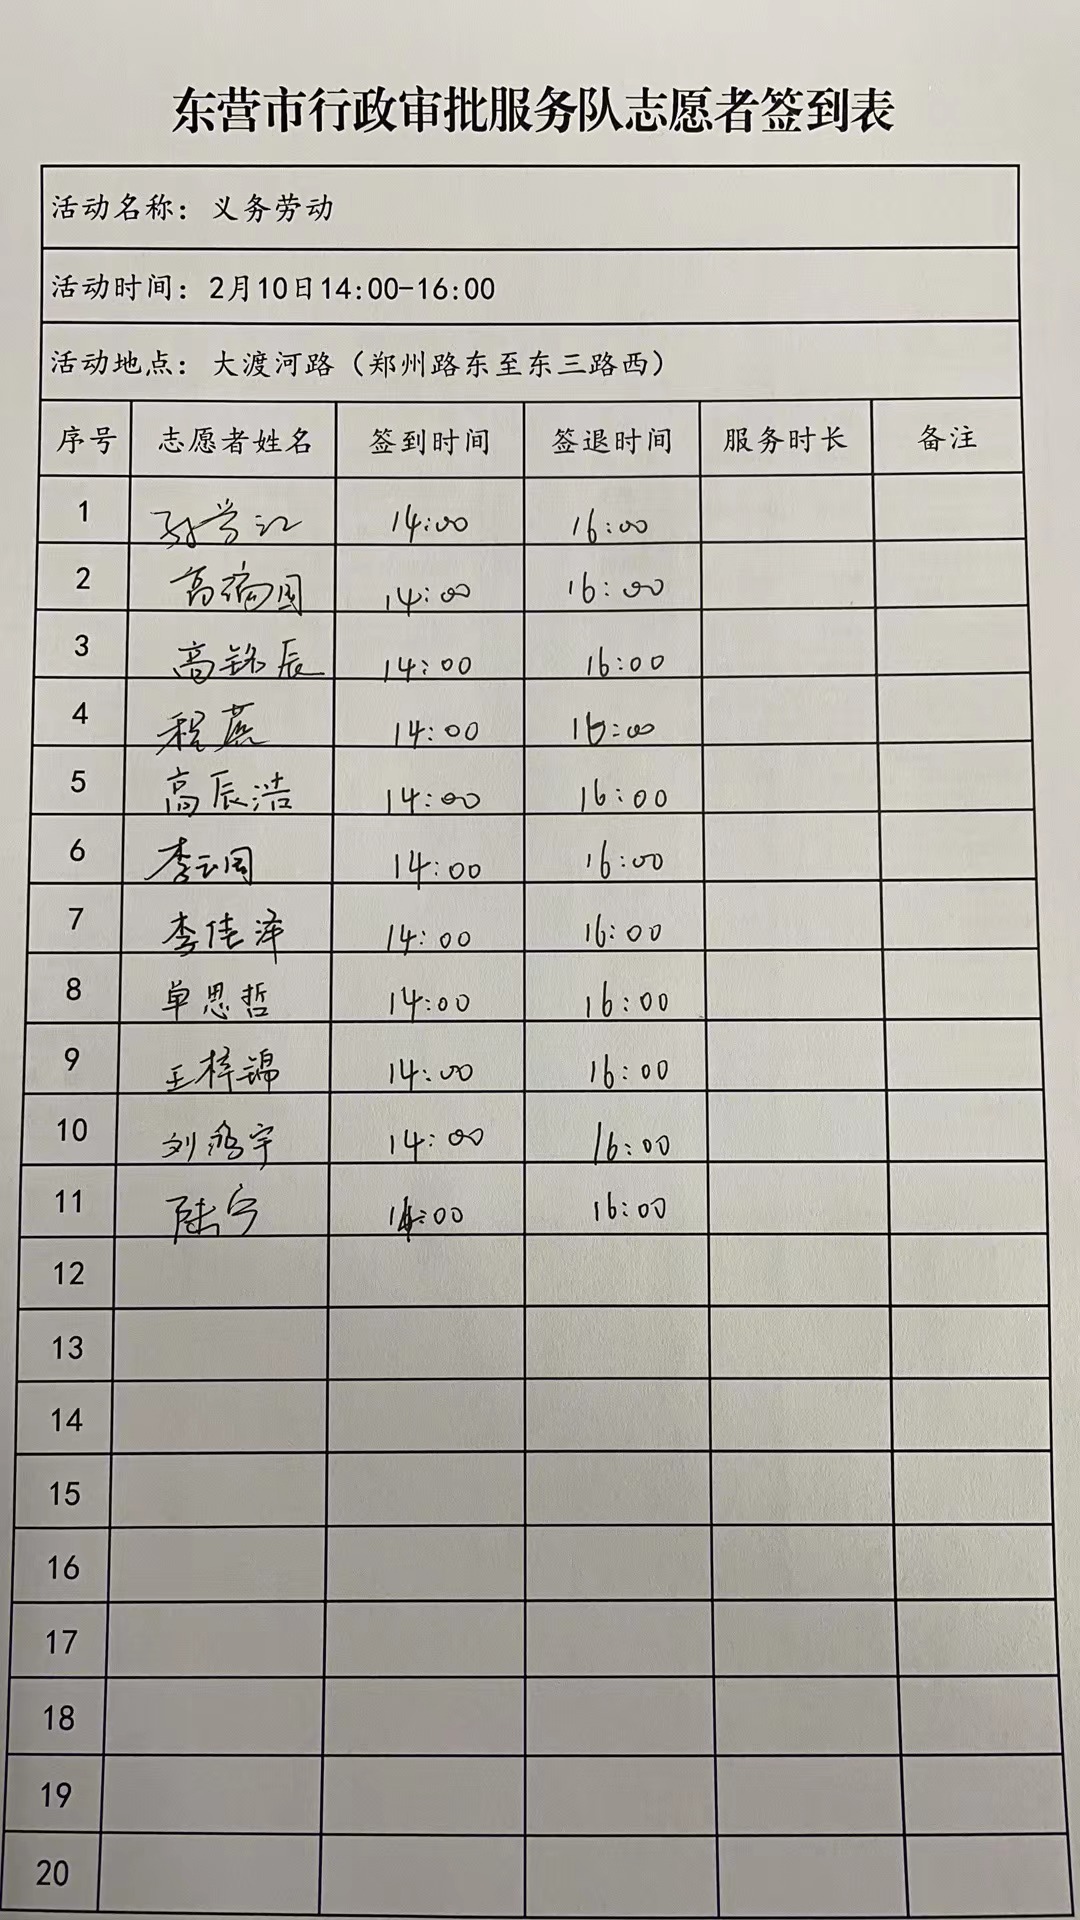 东营市行政审批服务队志愿者签到表
活动名称：义务劳动
活动时间：2月10日14:00-16:00
活动地点：大渡河路（郑州路东至东三路西）
序号 志愿者姓名 签到时间 签退时间 服务时长 备注
1 14:00 16:00
2 高瑞国 14:00 16:00
3 高铭辰 14:00 16:00
4 程燕 14:00 16:00
5 高辰浩 14:00 16:00
6 李云国 14:00 16:00
7 李佳泽 14:00 16:00
8 单思哲 14:00 16:00
9 王梓锦 14:00 16:00
10 14:00 16:00
11 陆宁 14:00 16:00
12
13
14
15
16
17
18
19
20